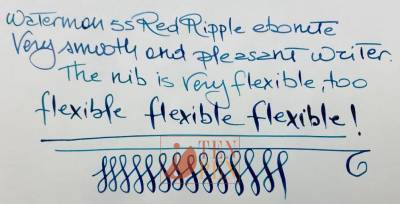 Waterman 55 Red Ripple ebonite
Very smooth and pleasant writer.
The nib is very flexible, too
flexible flexible flexible!
TEN